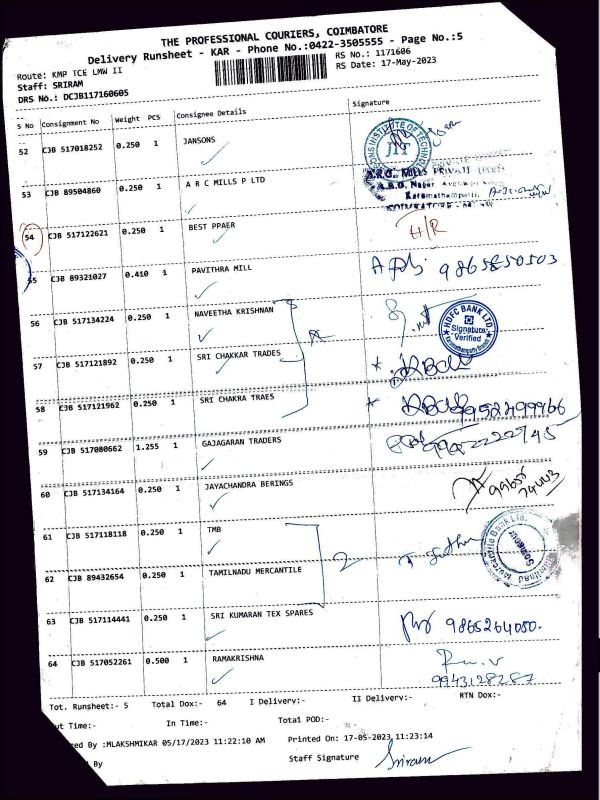 THE PROFESSIONAL COURIERS, COIMBATORE
Delivery Runsheet - KAR - Phone No.:0422-3505555 - Page No.:5
Route: KMP TCE LMW II
RS No.: 1171606
Staff: SRIRAM
RS Date: 17-May-2023
DRS No.: DCJB117160605
S No Consignment No Weight PCS Consignee Details Signature
52 CJB 517018252 0.250 1 JANSONS
53 CJB 89504860 0.250 1 A R C MILLS P LTD
54 CJB 517122621 0.250 1 BEST PPAER H/R
55 CJB 89321027 0.410 1 PAVITHRA MILL 9865850503
56 CJB 517134224 0.250 1 NAVEETHA KRISHNAN
HDFC BANK LTD.
Signature
Verified
57 CJB 517121892 0.250 1 SRI CHAKKAR TRADES
58 CJB 517121962 0.250 1 SRI CHAKRA TRAES
59 CJB 517080662 1.255 1 GAJAGARAN TRADERS
60 CJB 517134164 0.250 1 JAYACHANDRA BERINGS
61 CJB 517118118 0.250 1 TMB
2
62 CJB 89432654 0.250 1 TAMILNADU MERCANTILE
63 CJB 517114441 0.250 1 SRI KUMARAN TEX SPARES 9865264050.
64 CJB 517052261 0.500 1 RAMAKRISHNA
9943128287
Tot. Runsheet:- 5 Total Dox:- 64 I Delivery:- II Delivery:- RTN Dox:-
ut Time:- In Time:- Total POD:-
ed By :MLAKSHMIKAR 05/17/2023 11:22:10 AM Printed On: 17-05-2023 11:23:14
By Staff Signature Sriram